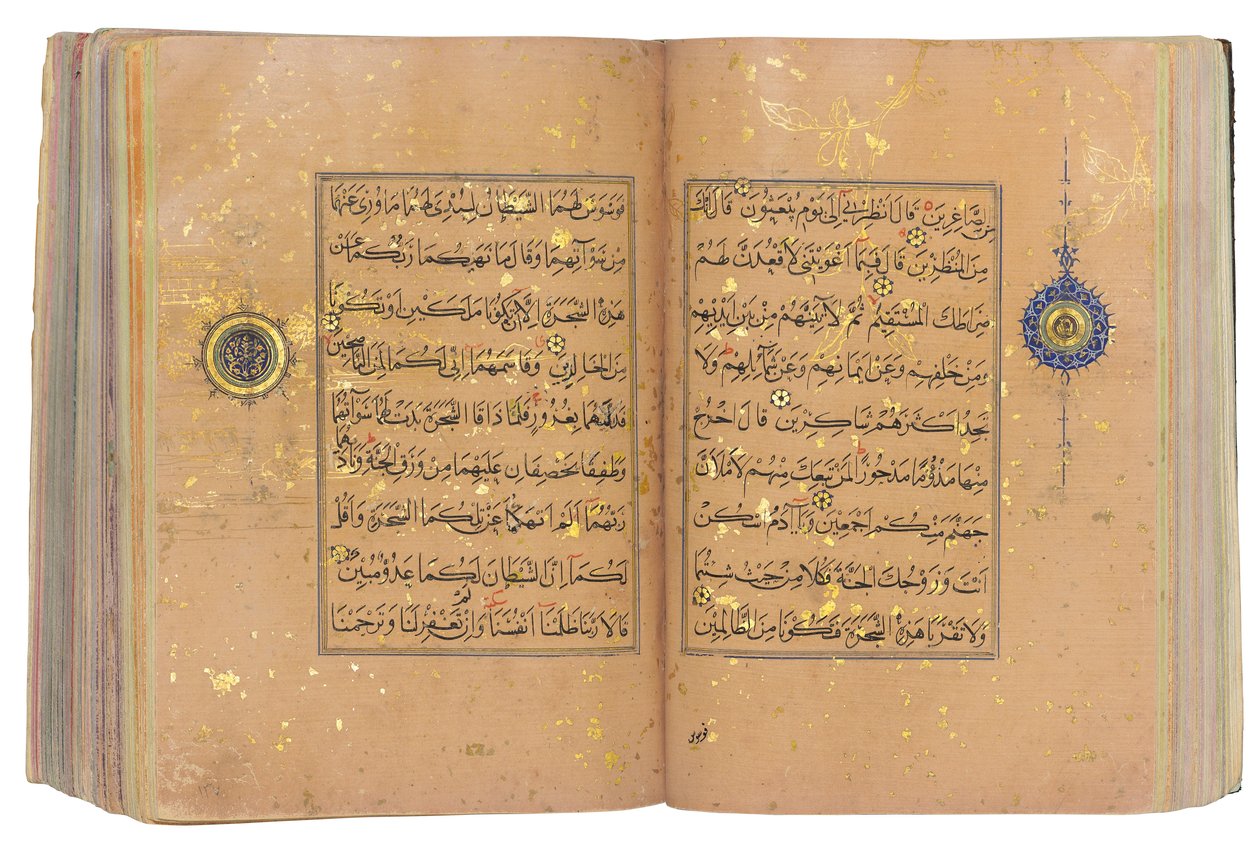 مِنَ الصَّاغِرِينَ قَالَ أَنْظِرْنِي إِلَى يَوْمِ يُبْعَثُونَ قَالَ إِنَّكَ
مِنَ الْمُنْظَرِينَ قَالَ فَبِمَا أَغْوَيْتَنِي لَأَقْعُدَنَّ لَهُمْ
صِرَاطَكَ الْمُسْتَقِيمَ ثُمَّ لَآتِيَنَّهُمْ مِنْ بَيْنِ أَيْدِيهِمْ
وَمِنْ خَلْفِهِمْ وَعَنْ أَيْمَانِهِمْ وَعَنْ شَمَائِلِهِمْ وَلَا
تَجِدُ أَكْثَرَهُمْ شَاكِرِينَ قَالَ اخْرُجْ
مِنْهَا مَذْؤُمًا مَدْحُورًا لَمَنْ تَبِعَكَ مِنْهُمْ لَأَمْلَأَنَّ
جَهَنَّمَ مِنْكُمْ أَجْمَعِينَ وَيَا آدَمُ اسْكُنْ
أَنْتَ وَزَوْجُكَ الْجَنَّةَ فَكُلَا مِنْ حَيْثُ شِئْتُمَا
وَلَا تَقْرَبَا هَذِهِ الشَّجَرَةَ فَتَكُونَا مِنَ الظَّالِمِينَ
فوسوس
فَوَسْوَسَ لَهُمَا الشَّيْطَانُ لِيُبْدِيَ لَهُمَا مَا وُورِيَ عَنْهُمَا
مِنْ سَوْآتِهِمَا وَقَالَ مَا نَهَيكُمَا رَبُّكُمَا عَنْ
هَذِهِ الشَّجَرَةِ إِلَّا أَنْ تَكُونَا مَلَكَيْنِ أَوْ تَكُونَا
مِنَ الْخَالِدِينَ وَقَاسَمَهُمَا إِنِّي لَكُمَا لَمِنَ النَّاصِحِينَ
فَدَلَّيهُمَا بِغُرُورٍ فَلَمَّا ذَاقَا الشَّجَرَةَ بَدَتْ لَهُمَا سَوْآتُهُمَا
وَطَفِقَا يَخْصِفَانِ عَلَيْهِمَا مِنْ وَرَقِ الْجَنَّةِ وَنَادَيهُمَا
رَبُّهُمَا أَلَمْ أَنْهَكُمَا عَنْ تِلْكُمَا الشَّجَرَةِ وَأَقُلْ
لَكُمَا إِنَّ الشَّيْطَانَ لَكُمَا عَدُوٌّ مُبِينٌ
قَالَا رَبَّنَا ظَلَمْنَا أَنْفُسَنَا وَإِنْ لَمْ تَغْفِرْ لَنَا وَتَرْحَمْنَا